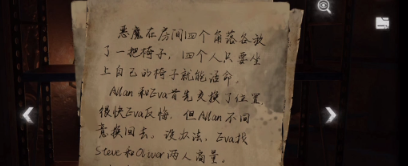 恶魔在房间四个角落各放
了一把椅子，四个人只要坐
上自己的椅子就能活命。
Allan和Eva首先交换了位置，
很快Eva反悔，但Allan不同
意换回去。没办法，Eva找
Steve和Oscar两人商量。